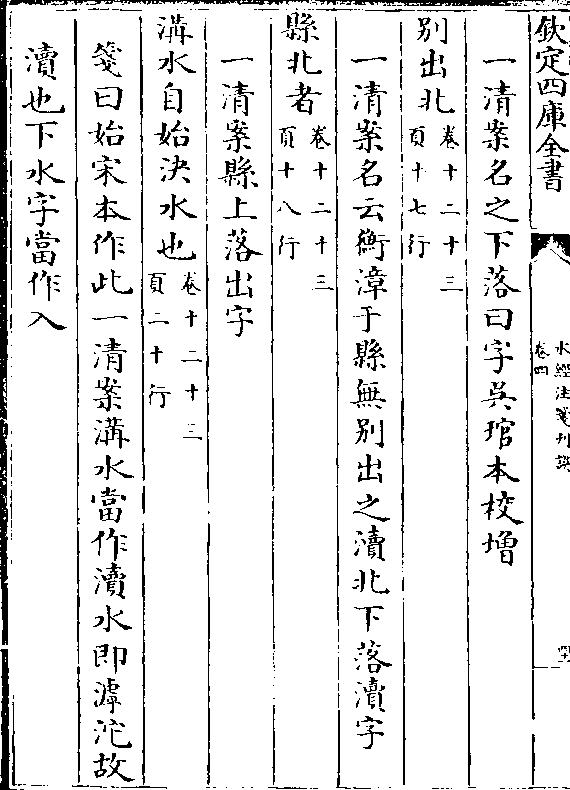 欽定四庫全書
水經注箋刊誤
卷四
一清案名之下落曰字吳琯本校增
別出北卷十二十三
頁十七行
一清案名云衡漳于縣無別出之瀆北下落瀆字
縣北者卷十二十三
頁十八行
一清案縣上落出字
溝水自始決水也卷十二十三
頁二十行
箋曰始宋本作此一清案溝水當作瀆水即滹沱故
瀆也下水字當作入